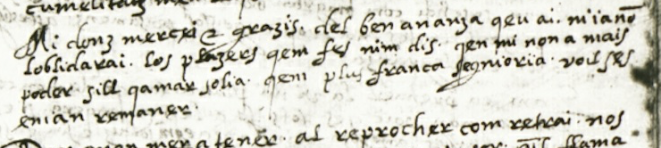 cumelitatz me
Mi donz merces e grazis. del ben ananza qeu ai. mianō
loblidarai. los plazers qem fes nim dis. qen mi non a mais
poder. sill qamar solia. qem plus franca segnioria. vol ses
enian remaner.
mer atener. al reprocher com retrai. nos